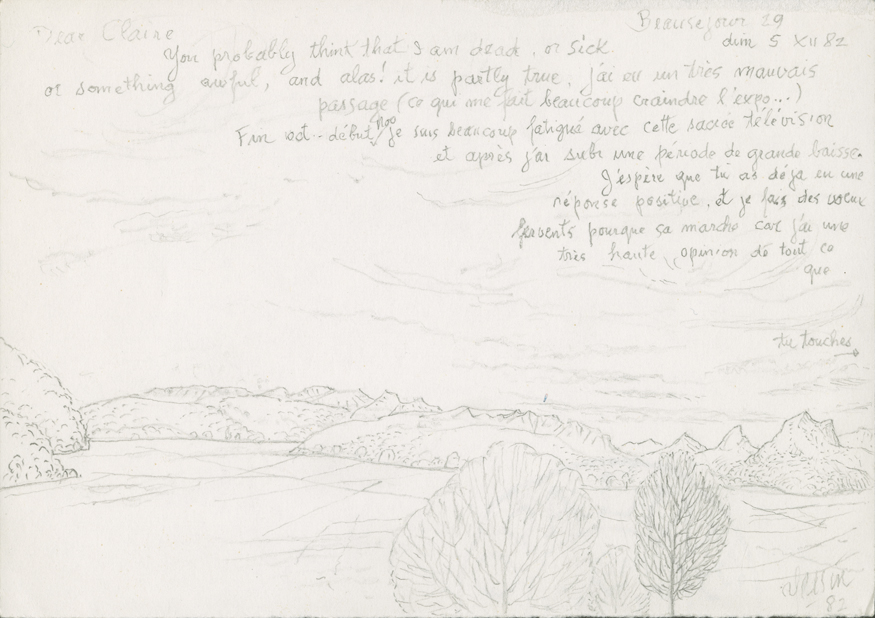 Beausejour 29
dim 5 XII 82
Dear Claire
You probably think that I am dead, or sick.
or something awful, and alas! it is partly true, j'ai eu un très mauvais
passage (ce qui me fait beaucoup craindre l'expo...)
Fin oct.. début nov je suis beaucoup fatigué avec cette sacrée télévision
et après j'ai subi une période de grande baisse.
J'espère que tu as déja eu une
réponse positive, et je fais des voeux
fervents pourque ça marche car j'ai une
très haute opinion de tout ce
que
tu touches
82